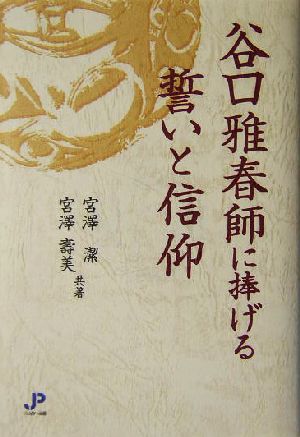 谷口雅春師に捧げる
誓いと信仰
宮澤 潔
宮澤 壽美
共著
JP